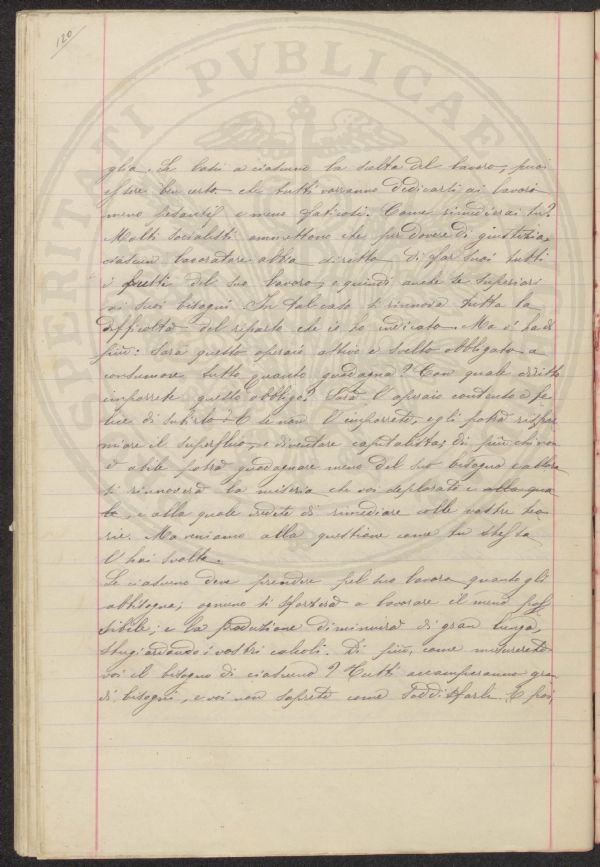 120
glia. Se lasci a ciascuno la scelta del lavoro, puoi
essere ben certo che tutti vorranno dedicarsi ai lavori
meno pesanti e meno faticosi. Come rimedierai tu?
Molti socialisti ammettono che per dovere di giustizia,
ciascun lavoratore abbia diritto di far suoi tutti
i frutti del suo lavoro, e quindi anche se superiori
ai suoi bisogni. In tal caso si rinnova tutta la
difficoltà del riparto che io ho indicato. Ma vi ha di
più: Sarà questo operaio attivo e svelto obbligato a
consumare tutto quanto guadagna? Con quale diritto
imporrete questo obbligo? Sarà l'operaio contento e fe
lice di subirlo? E se non l'imporrete, egli potrà rispar
miare il superfluo, e diventare capitalista; di più chi non
è abile potrà guadagnare meno del suo bisogno e allora
si rinnoverà la miseria che voi deplorate e alla qua
le, e alla quale credete di rimediare colle vostre teo
rie. Ma veniamo alla questione come tu stessa
l'hai svolta.
Se ciascuno deve prendere pel suo lavoro quanto gli
abbisogna, ognuno si sforzerà a lavorare il meno pos
sibile; e la produzione diminuirà di gran lunga,
sbugiardando i vostri calcoli. Di più, come misurerete
voi il bisogno di ciascuno? Tutti accamperanno gran
di bisogni, e voi non saprete come soddisfarli. E poi,
SPERITATI PVBLICAE